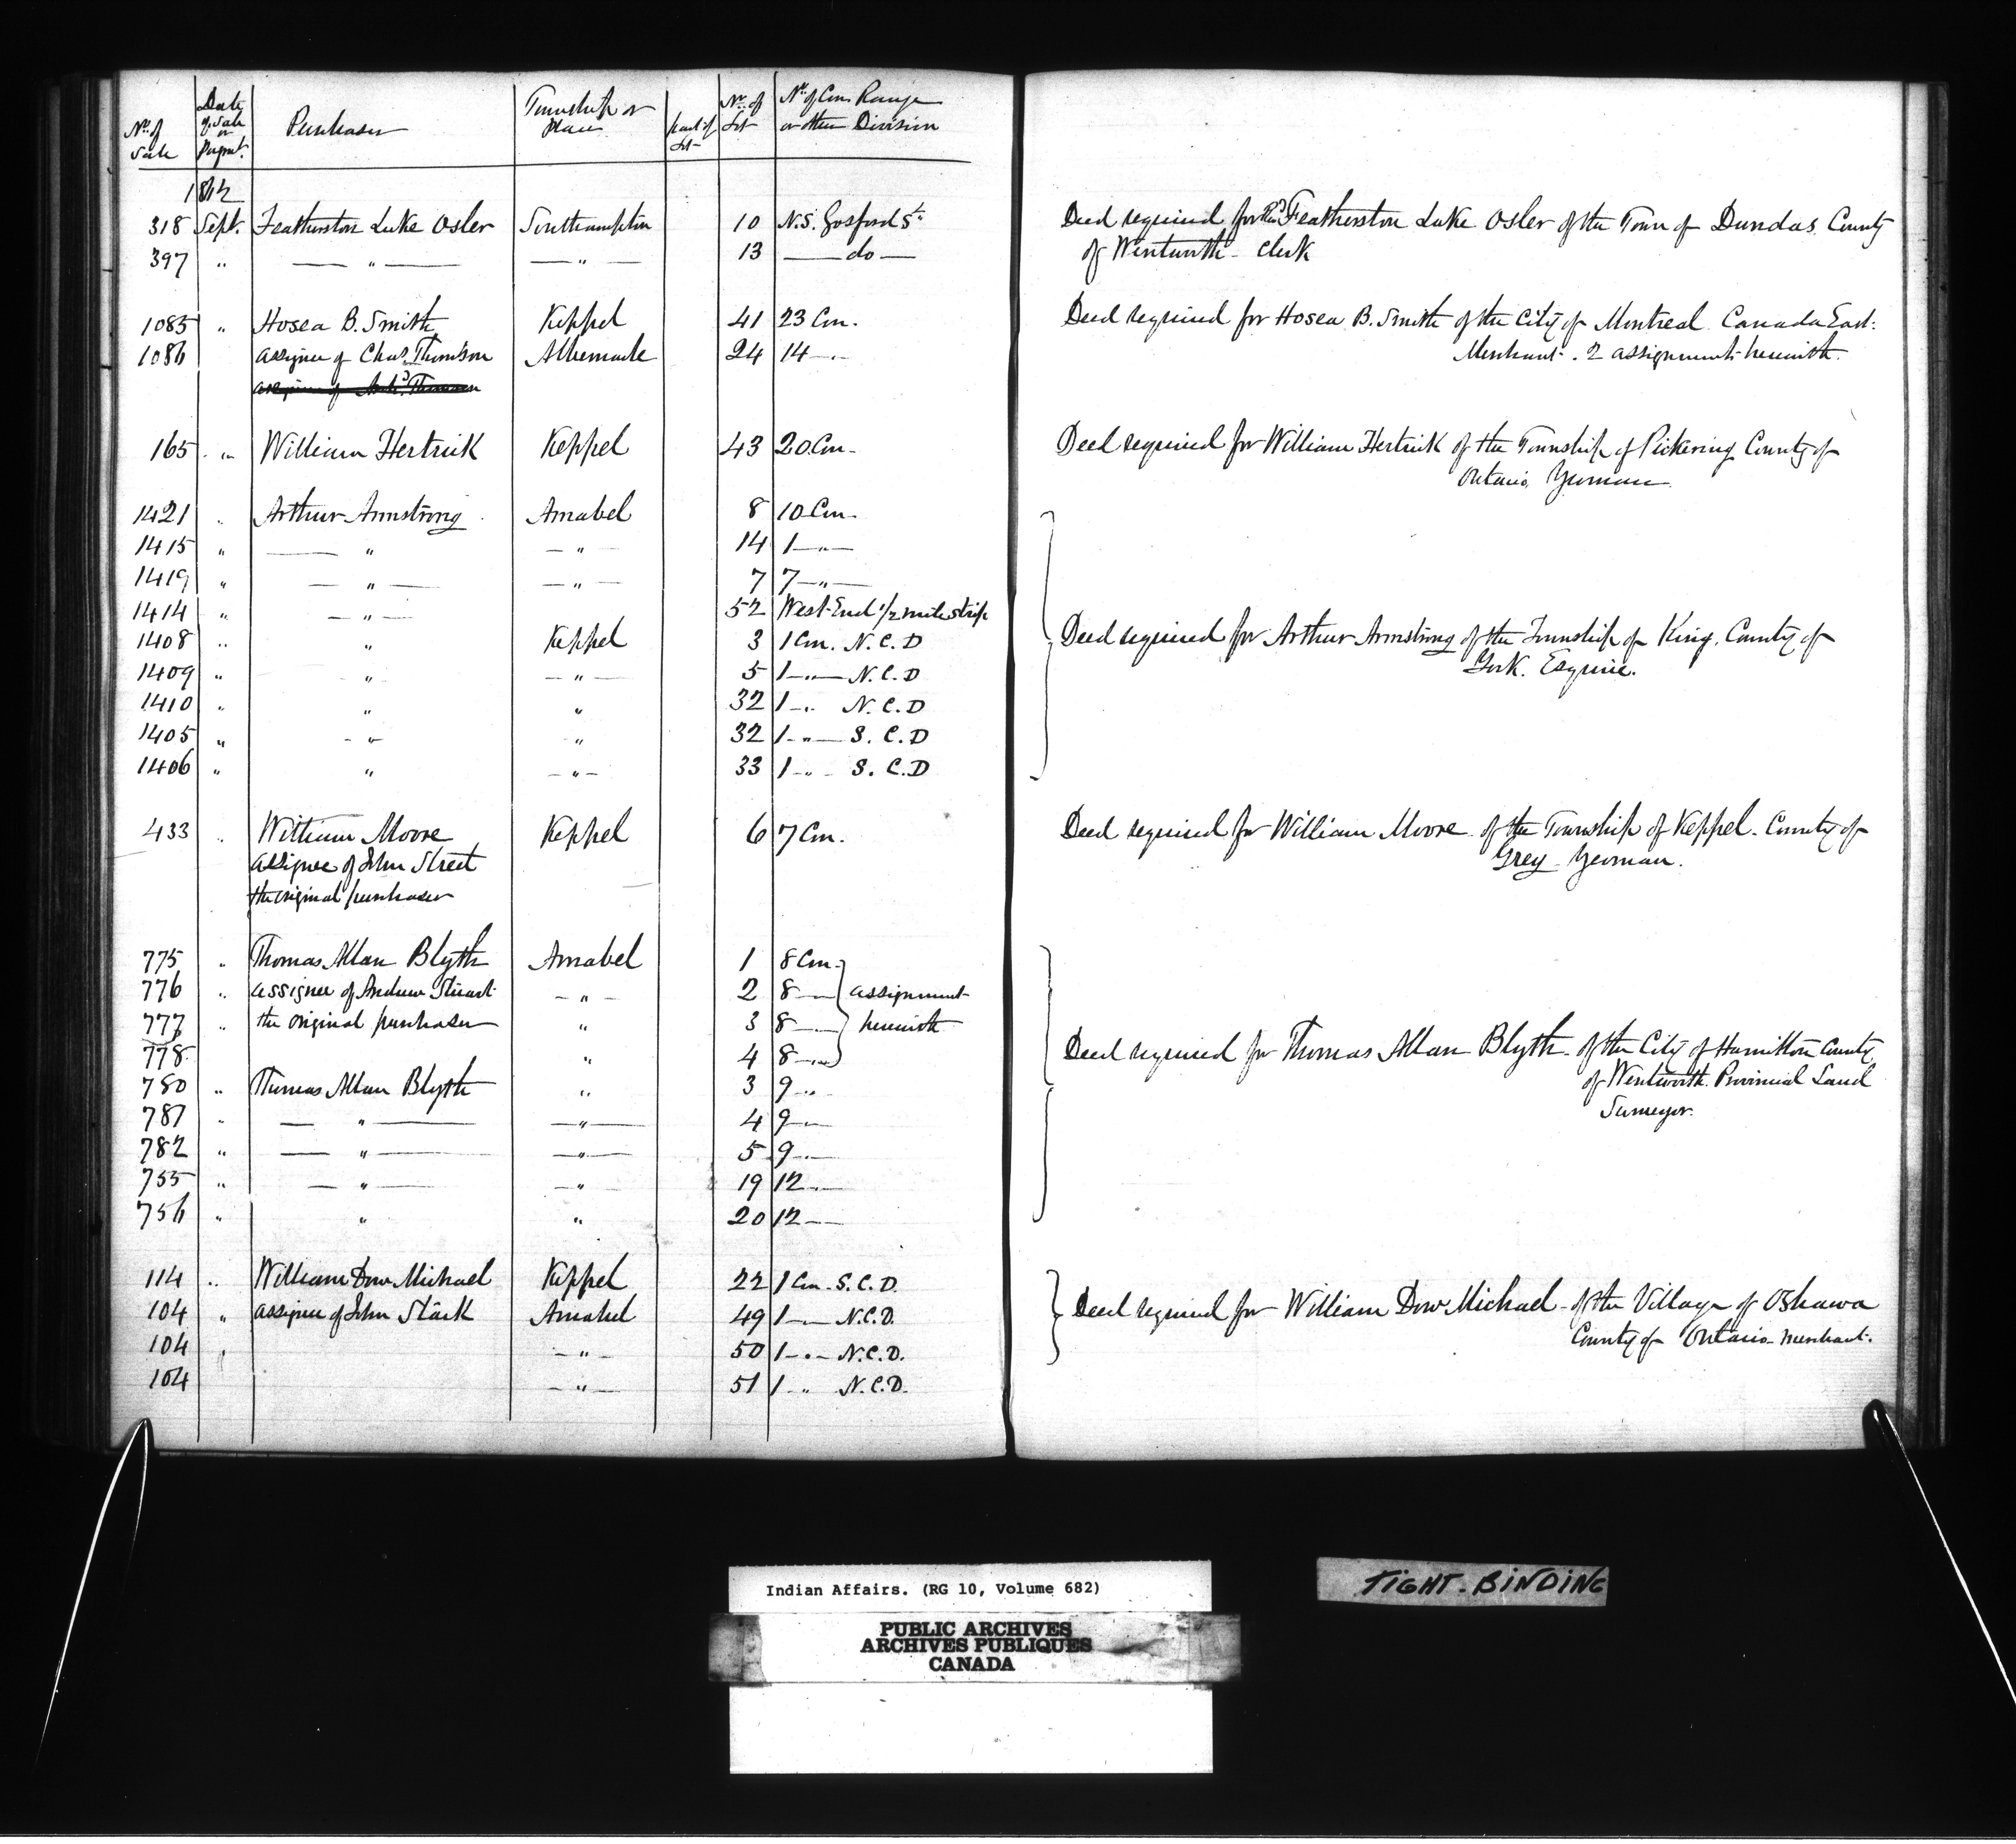 No. of Sale | Date of Sale or Paymt. | Purchaser | Township or Place | part of Lot | No. of Lot | No. of Con. Range or other Division
1862
318 Sept. Featherston Luke Osler Southampton 10 N.S. Gosford St.
397 " — " — — " — 13 — do —
1085 " Hosea B. Smith Keppel 41 23 Con.
1086 assignee of Chas. Thomson Albemarle 24 14 — "
165 " William Hertrick Keppel 43 20 Con.
1421 " Arthur Armstrong Amabel 8 10 Con.
1415 " — " — " — 14 1 — " —
1419 " — " — — " — 7 7 — " —
1414 " — " — 52 West End 1/2 mile strip
1408 " " Keppel 3 1 Con. N.C.D
1409 " " — " — 5 1 — " — N.C.D
1410 " " " 32 1 — " N.C.D
1405 " " " 32 1 — " — S.C.D
1406 " " — " — 33 1 — " S.C.D
433 " William Moore Keppel 6 7 Con.
assignee of John Street
the original purchaser
775 " Thomas Allan Blyth Amabel 1 8 Con.
776 " assignee of Andrew Stuart — " — 2 8 — " assignment
777 " the original purchaser " 3 8 — " herewith
778 " 4 8 — "
780 " Thomas Allan Blyth " 3 9 — "
781 " — " — — " — 4 9 — "
782 " — " — — " — 5 9 — "
755 " — " — — " — 19 12 — "
756 " " " 20 12 — "
114 " William Dow Michael Keppel 22 1 Con. S.C.D.
104 " assignee of John Stark Amabel 49 1 — " N.C.D.
104 " — " — 50 1 — " — N.C.D.
104 — " — 51 1 — " N.C.D.
Deed required for Revd. Featherston Luke Osler of the Town of Dundas County
of Wentworth - Clerk
Deed required for Hosea B. Smith of the City of Montreal Canada East.
Merchant. 2 assignments herewith.
Deed required for William Hertrick of the Township of Pickering County of
Ontario Yeoman
Deed required for Arthur Armstrong of the Township of King. County of
York. Esquire.
Deed required for William Moore of the Township of Keppel. County of
Grey Yeoman.
Deed required for Thomas Allan Blyth of the City of Hamilton County
of Wentworth Provincial Land
Surveyor.
Deed required for William Dow Michael of the Village of Oshawa
County of Ontario Merchant.
Indian Affairs. (RG 10, Volume 682)
PUBLIC ARCHIVES
ARCHIVES PUBLIQUES
CANADA
TIGHT-BINDING